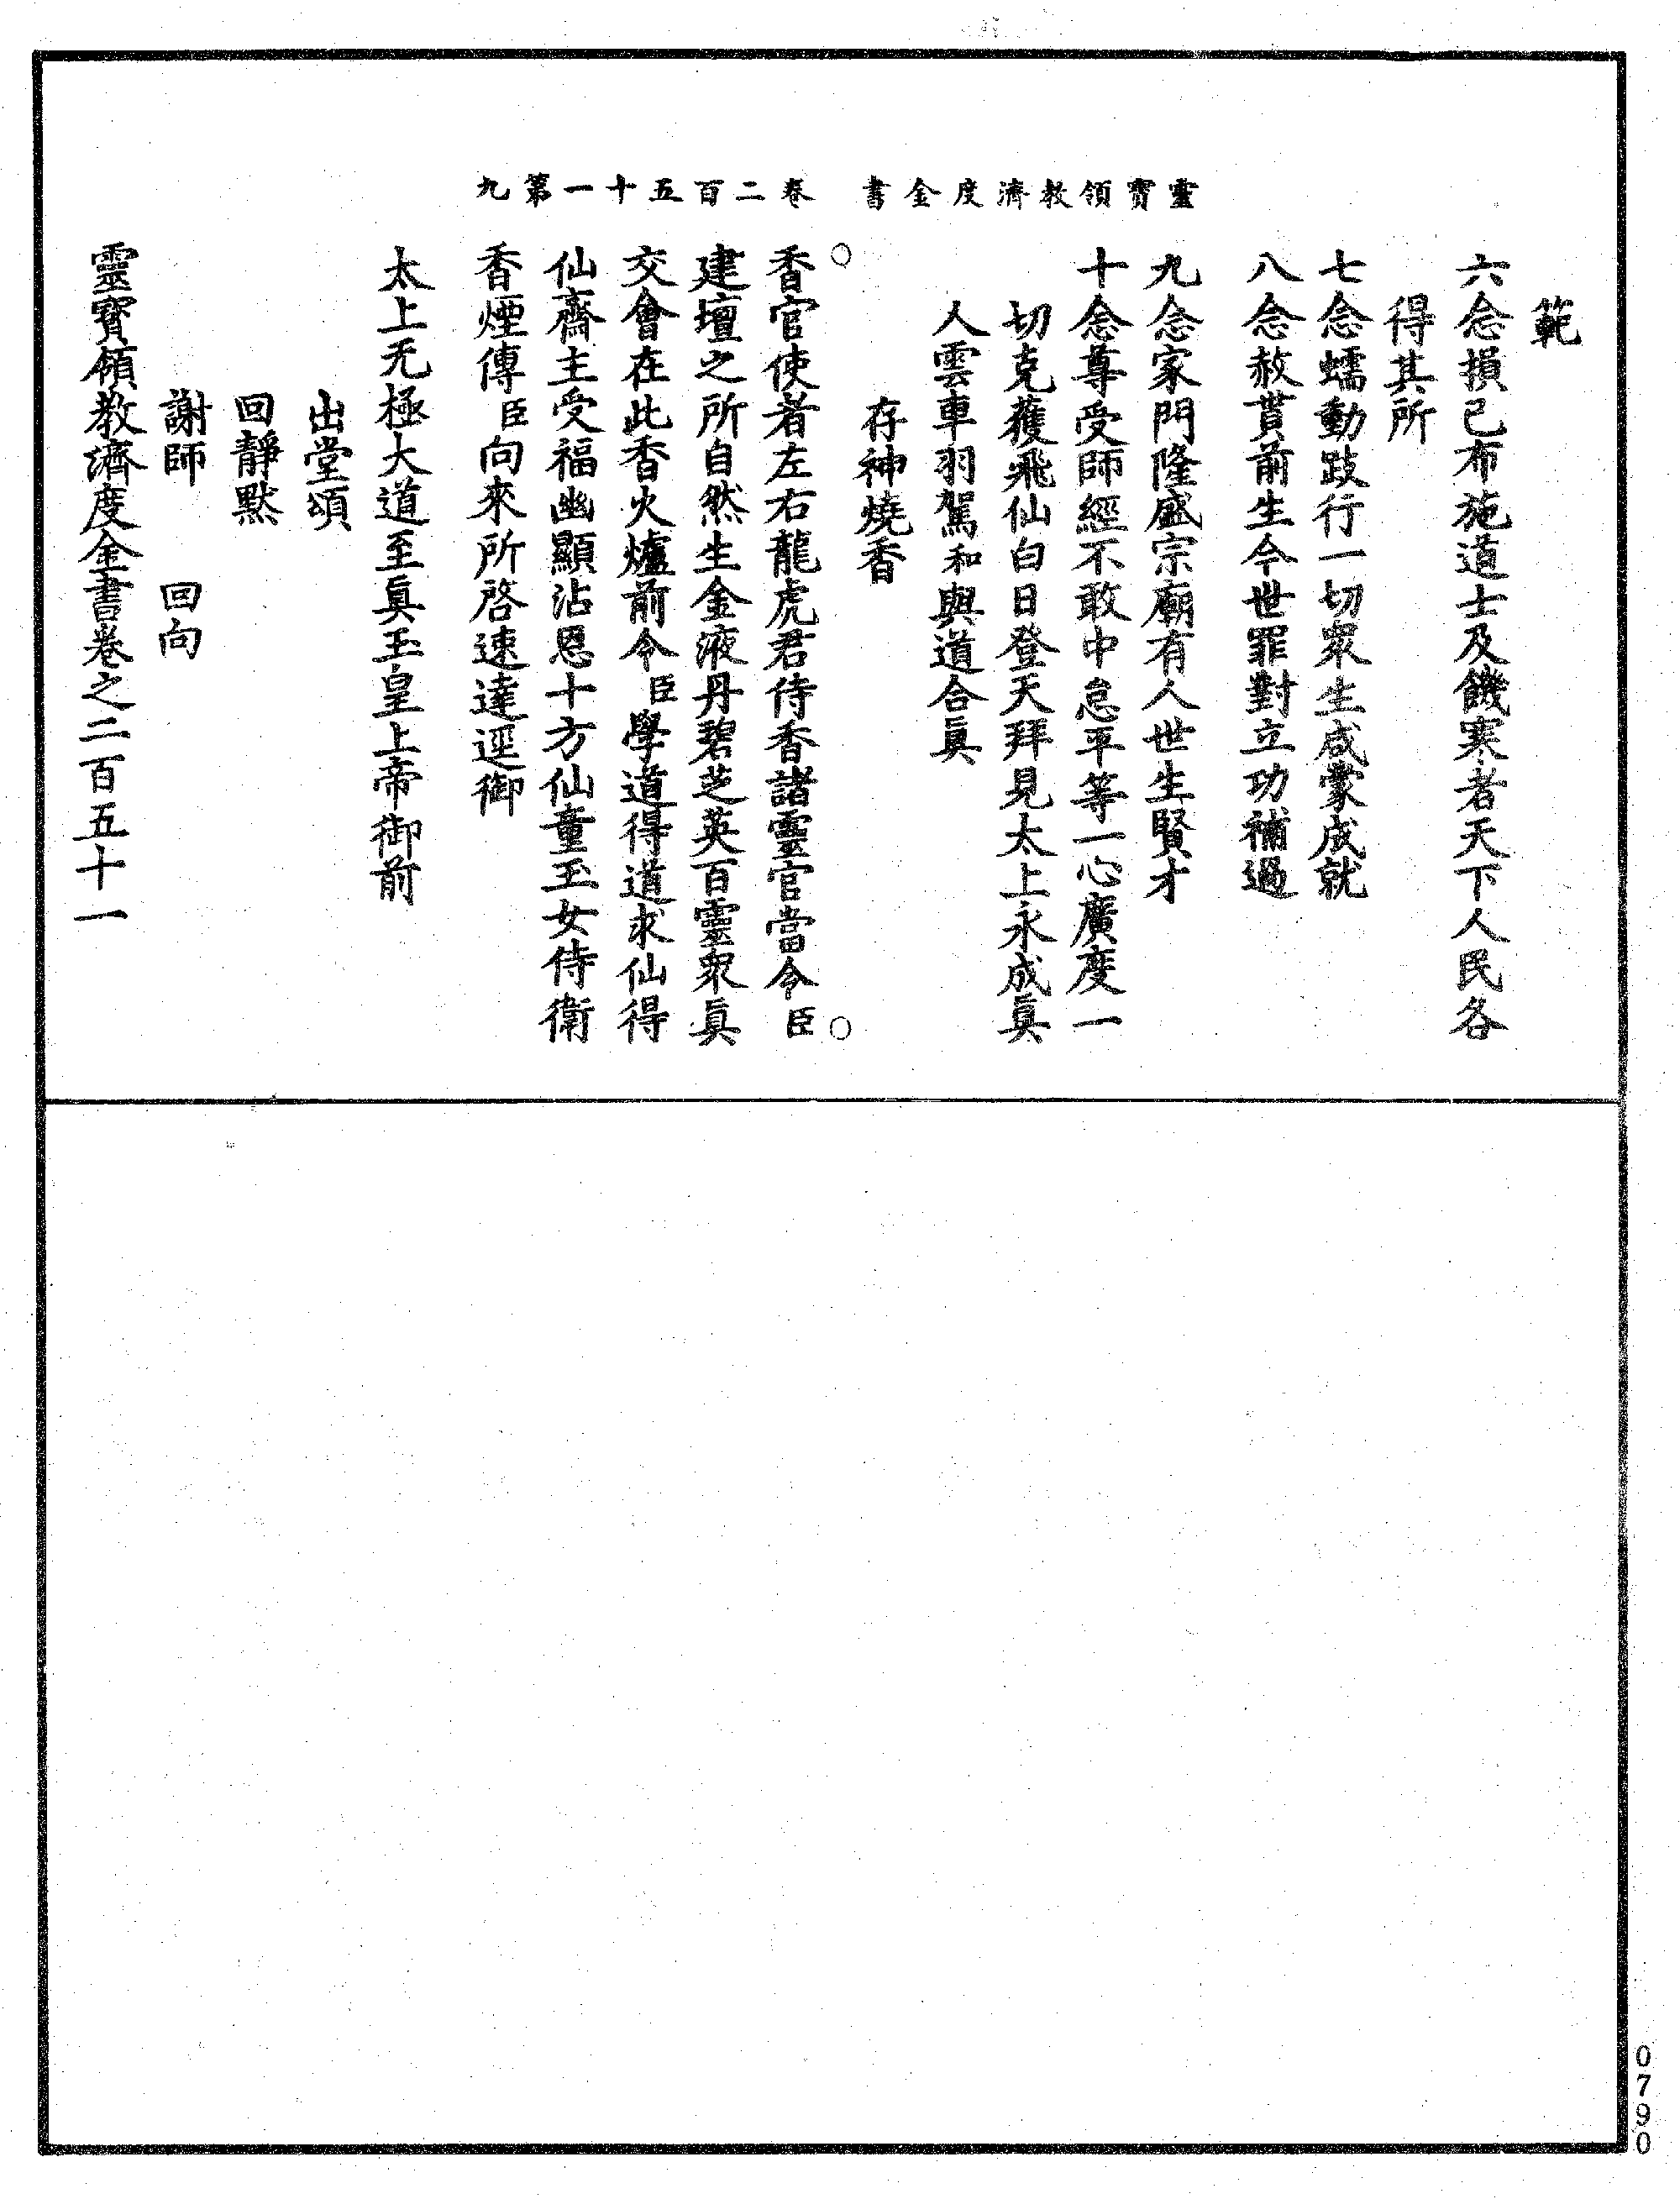 靈寶領教濟度金書 卷二百五十一第九
範
六念損己布施道士及饑寒者天下人民各
得其所
七念蠕動跂行一切眾生咸蒙成就
八念赦貰前生今世罪對立功補過
九念家門隆盛宗廟有人世生賢才
十念尊受師經不敢中怠平等一心廣度一
切克獲飛仙白日登天拜見太上永成眞
人雲車羽駕和與道合眞
存神燒香
香官使者左右龍虎君侍香諸靈官當令臣
建壇之所自然生金液丹碧芝英百靈眾眞
交會在此香火爐前令臣學道得道求仙得
仙齋主受福幽顯沾恩十方仙童玉女侍衛
香煙傳臣向來所啓速達逕御
太上无極大道至眞玉皇上帝御前
出堂頌
回靜默
謝師 回向
靈寶領教濟度金書卷之二百五十一
0790